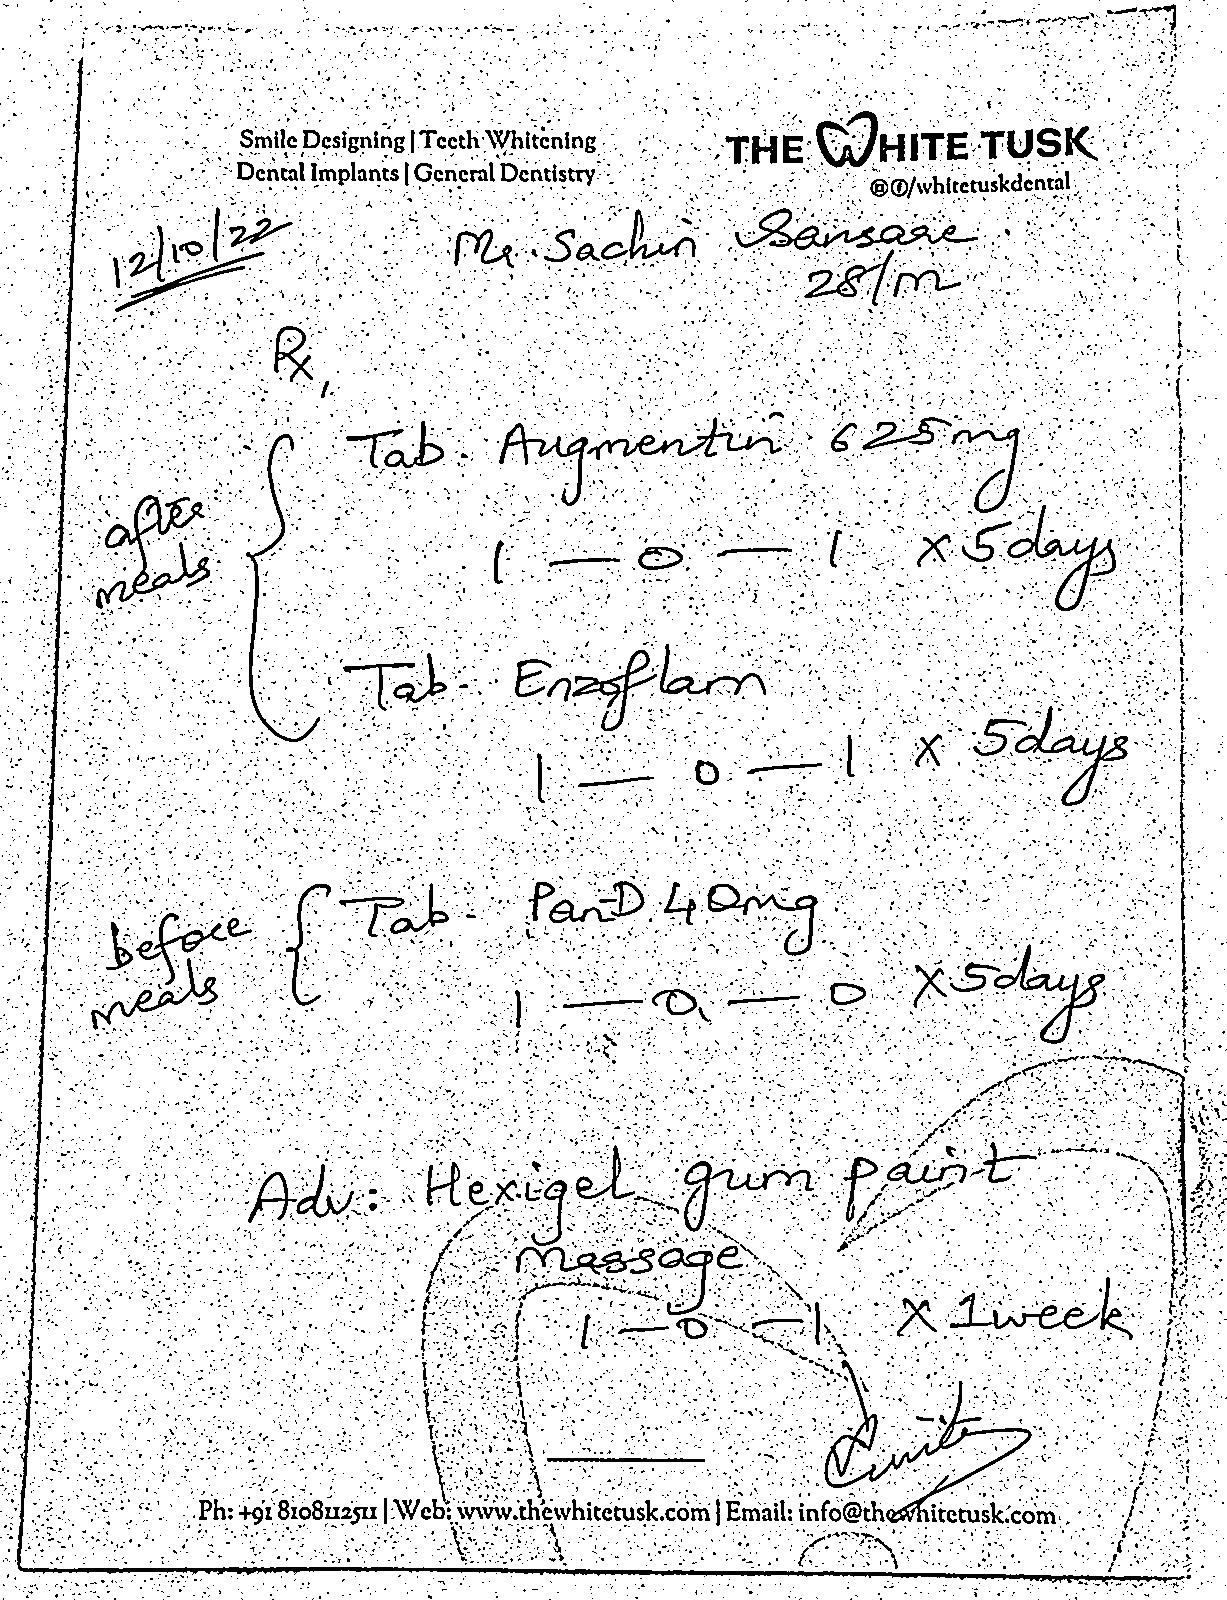 Smile Designing | Teeth Whitening
Dental Implants | General Dentistry
THE WHITE TUSK
/whitetuskdental
12/10/22
Mr. Sachin Sansare
28/M
Rx,
after meals
Tab. Augmentin 625mg
1 — 0 — 1 x 5 days
Tab. Enzoflam
1 — 0 — 1 x 5 days
before meals
Tab. Pan-D 40mg
1 — 0 — 0 x 5 days
Adv: Hexigel gum paint
massage
1 — 0 — 1 x 1 week
Ph: +91 8108112511 | Web: www.thewhitetusk.com | Email: info@thewhitetusk.com